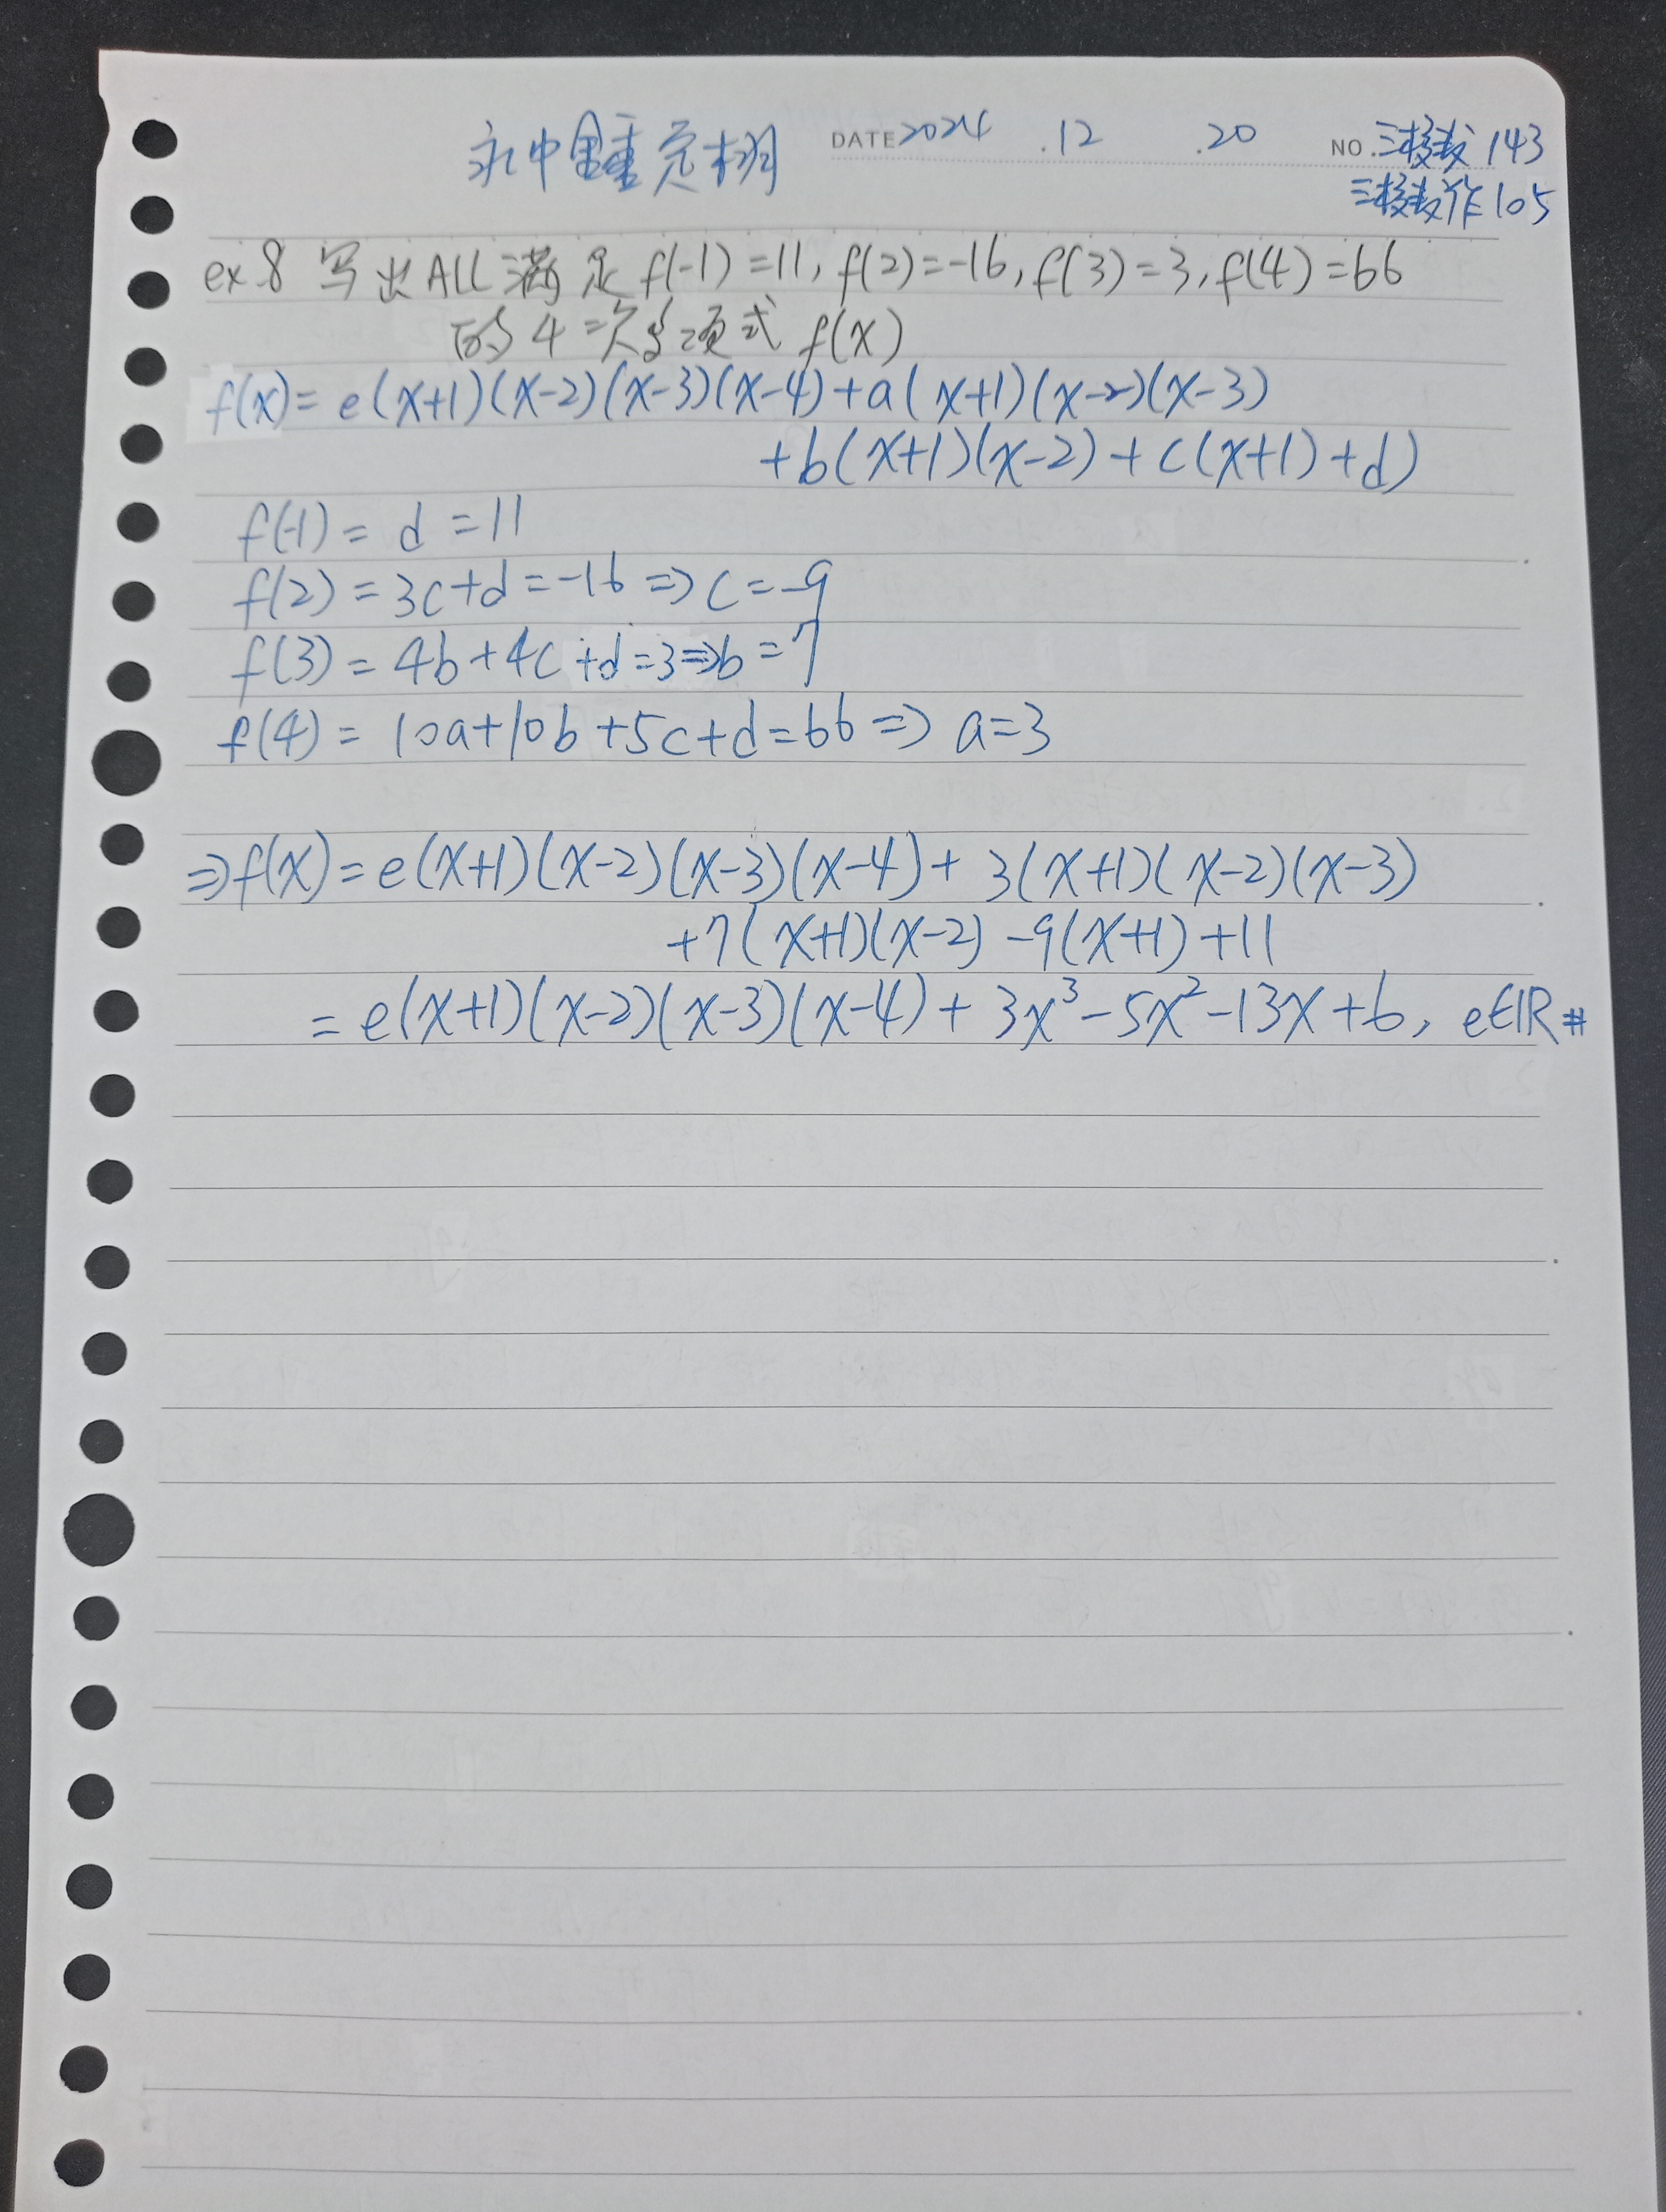 永中鍾克棡 DATE 2024 .12 .20 NO.三校数143
三校数作105
ex 8 写出ALL满足 f(-1)=11, f(2)=-16, f(3)=3, f(4)=66
的4次多项式 f(x)
f(x)= e(x+1)(x-2)(x-3)(x-4)+a(x+1)(x-2)(x-3)
+b(x+1)(x-2)+c(x+1)+d)
f(-1)= d =11
f(2)=3c+d=-16⇒c=-9
f(3)=4b+4c+d=3⇒b=7
f(4)= 10a+10b+5c+d=66⇒ a=3
⇒f(x)=e(x+1)(x-2)(x-3)(x-4)+ 3(x+1)(x-2)(x-3)
+7(x+1)(x-2)-9(x+1)+11
= e(x+1)(x-2)(x-3)(x-4)+ 3x³-5x²-13x+6, e∈IR #